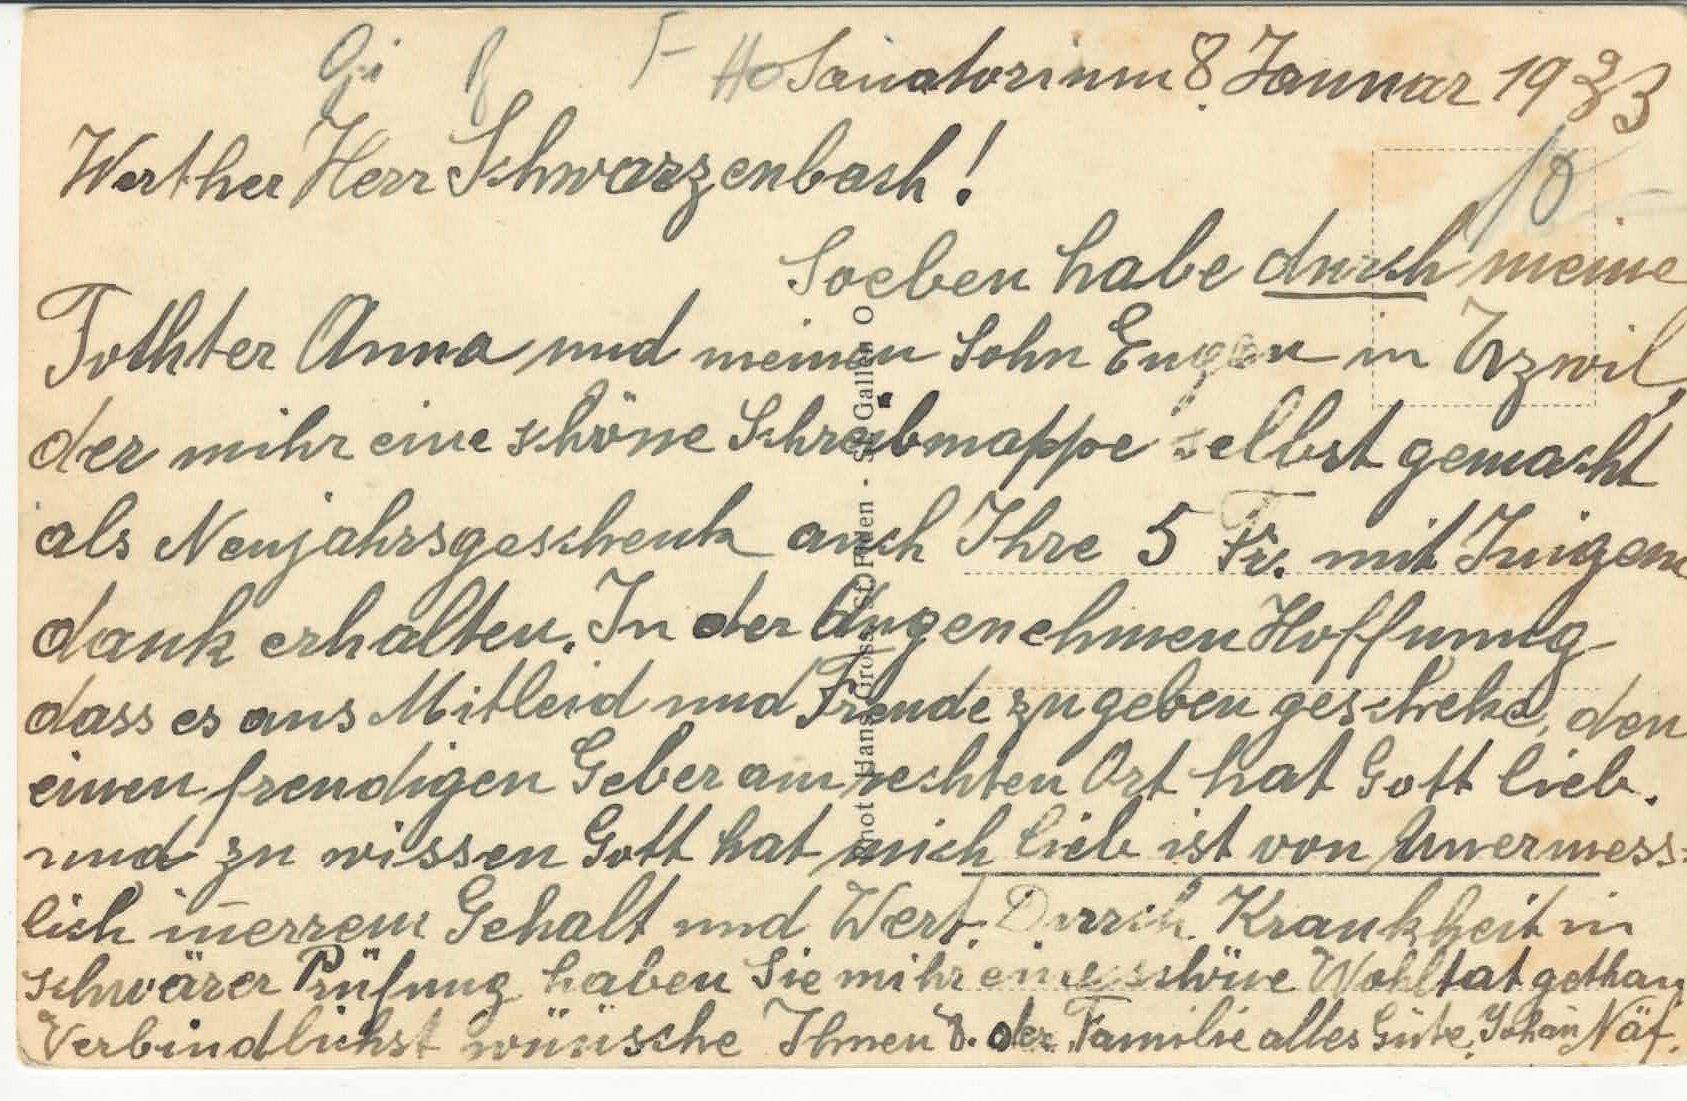 Gi F Ho Sanatorium 8. Januar 1933
Werther Herr Schwarzenbach!
10
Soeben habe durch meine
Tochter Anna und meinen Sohn Eugen in Uzwil,
der mihr eine schöne Schreibmappe selbst gemacht
als Neujahrsgeschenk auch Ihre 5 Fr. mit Innigem
dank erhalten. In der Angenehmen Hoffnung
dass es aus Mitleid und Freude zu geben geschehe, den
einen freudigen Geber am rechten Ort hat Gott lieb.
und zu wissen Gott hat mich lieb ist von Unermess-
lich innerrem Gehalt und Wert. Durch Krankheit in
schwärer Prüfung haben Sie mihr eine schöne Wohltat gethan
Verbindlichst wünsche Ihnen &. der Familie alles Gute. Johan Näf.
Hans Gross, St. Fiden - St. Gallen O